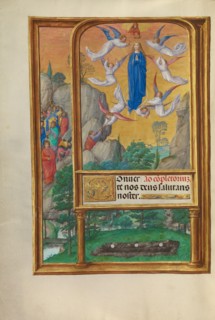 Onuer Ad cõpletoriuz.
te nos deus salutaris
noster.